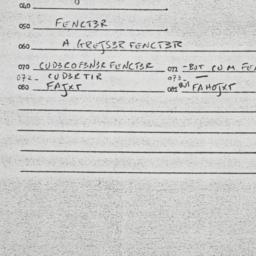 040
050 FENCT3R
060 A GREJS3R FENCT3R
070 CUD3ROF3N3R FENCT3R 071 -BUT CU M FEN
072- CUD3RTIR 073-
080 FAJXT 081 BUT FAHOJXT